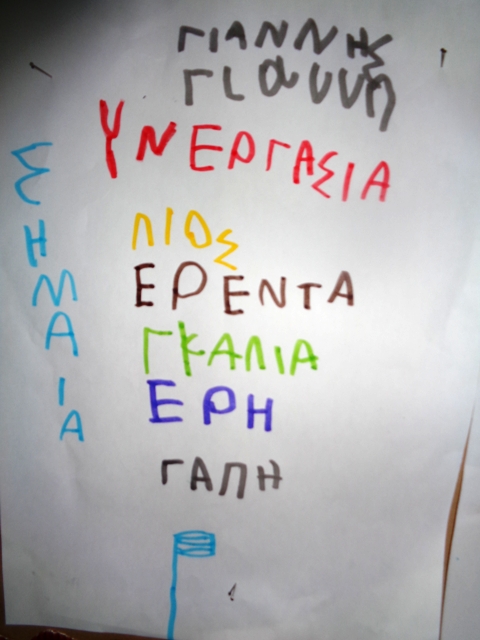 ΓΙΑΝΝΗΣ
Γιαννη
ΥΝΕΡΓΑΣΙΑ
ΛΙΟΣ
ΕΡΕΝΤΑ
ΓΚΑΛΙΑ
ΕΡΗ
ΓΑΠΗ
ΣΗΜΑΙΑ